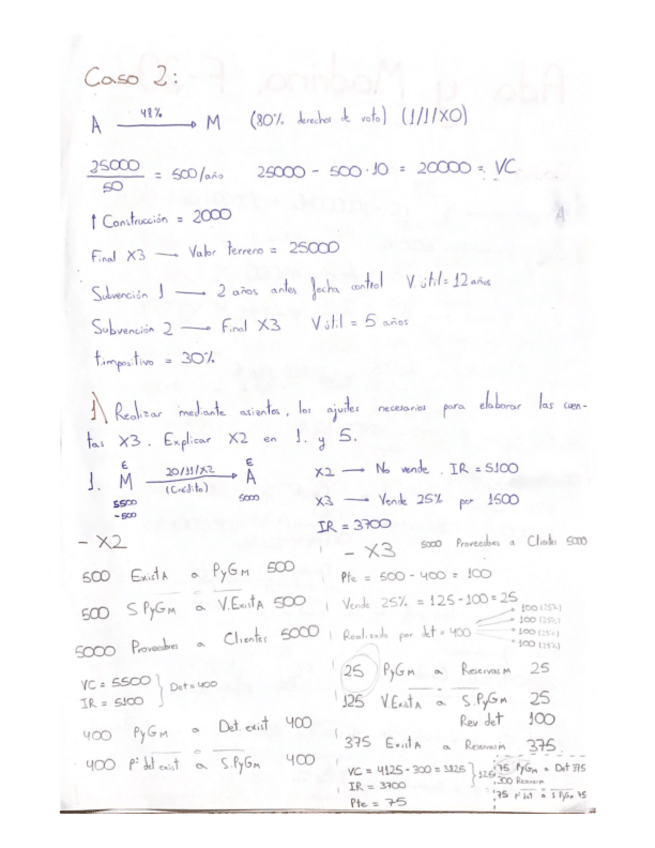 Caso 2:
A 48% M (80% derechos de voto) (1/1/X0)
25000 / 50 = 500/año 25000 - 500·10 = 20000 = VC
↑ Construcción = 2000
Final X3 → Valor terreno = 25000
Subvención 1 → 2 años antes fecha control V.útil = 12 años
Subvención 2 → Final X3 V útil = 5 años
t.impositivo = 30%
1) Realizar mediante asientos, los ajustes necesarios para elaborar las cuen-
tas X3. Explicar X2 en 1. y 5.
1. E M 5500 -500 20/11/X2 (Crédito) E A 5000
X2 → No vende. IR = 5100
X3 → Vende 25% por 1500
IR = 3700
- X2
500 Exist A a PyG M 500
500 S.PyG M a V.Exist A 500
5000 Proveedores a Clientes 5000
VC = 5500
IR = 5100
Det = 400
400 PyG M a Det. exist 400
400 Pª det exist a S.PyG M 400
- X3 5000 Proveedores a Clientes 5000
Pte = 500 - 400 = 100
Vende 25% = 125 - 100 = 25
Realizado por det = 400
100 (25%)
100 (25%)
100 (25%)
100 (25%)
25 PyG M a Reservas M 25
125 V.Exist A a S.PyG M 25
Rev det 100
375 Exist A a Reservas M 375
VC = 4125 - 300 = 3825
IR = 3700
125
Pte = 75
75 PyG M a Det 375
300 Reservas M
75 Pª det a S PyG M 75